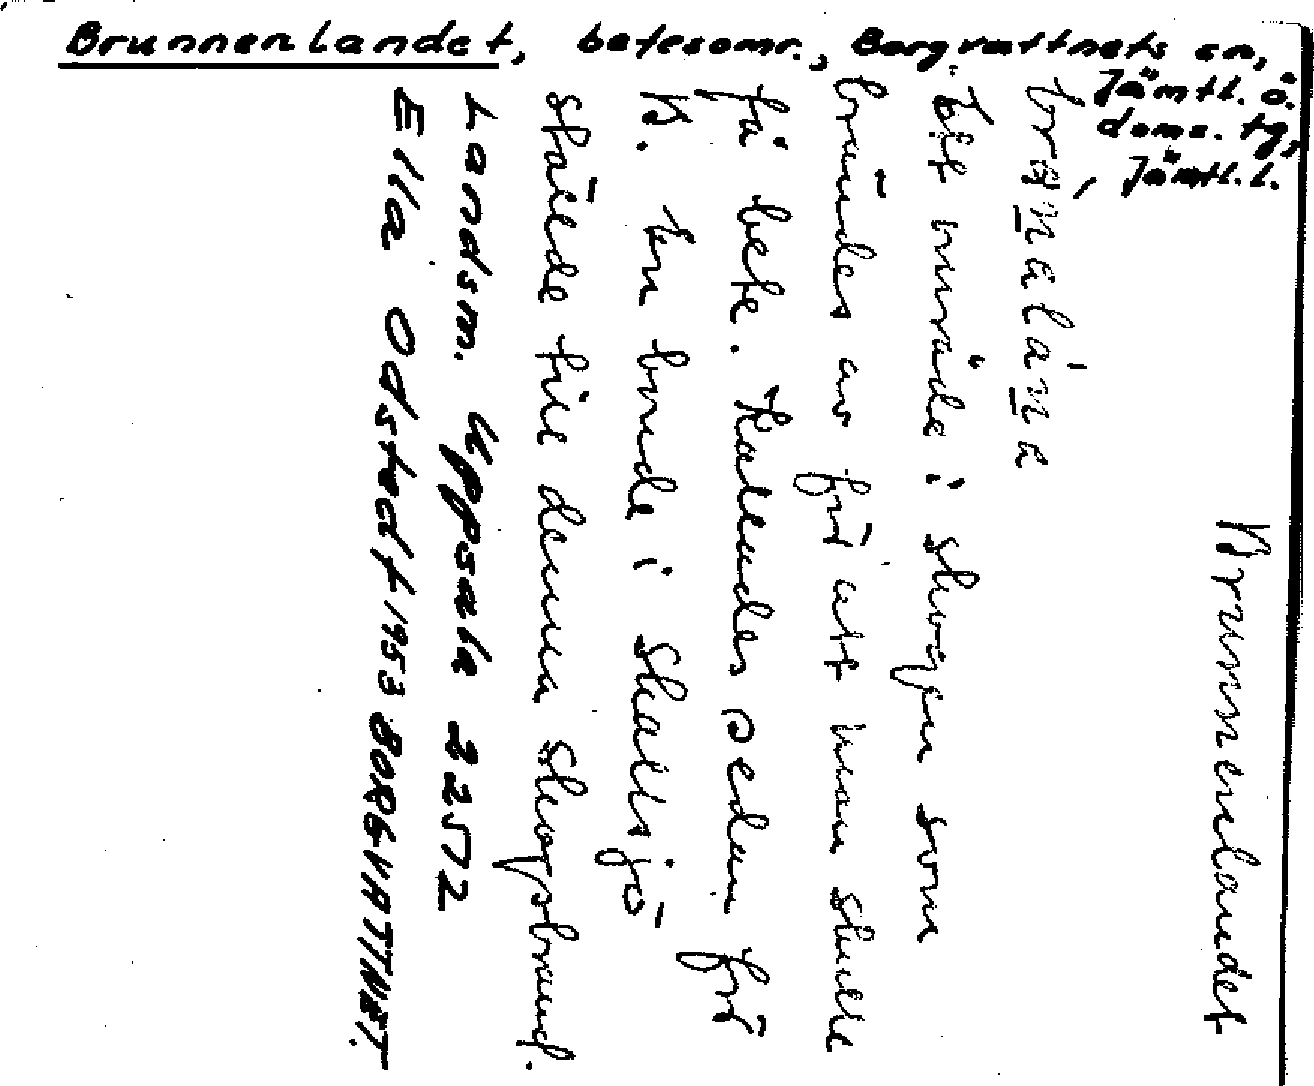 Brunnenlandet, betesomr., Borgvattnets sn,
Jämtl. ö.
doms. tg,
Jämtl. l.
Brunnenlandet
Ett område i skogen som
brändes av för att man skulle
få bete. Kallades sedan för
B. En bonde i Skallsjö
stälde till denna skogsbrand.
Landsm. Uppsala 2252
Ella Odstedt 1953 BORGVATTNET.